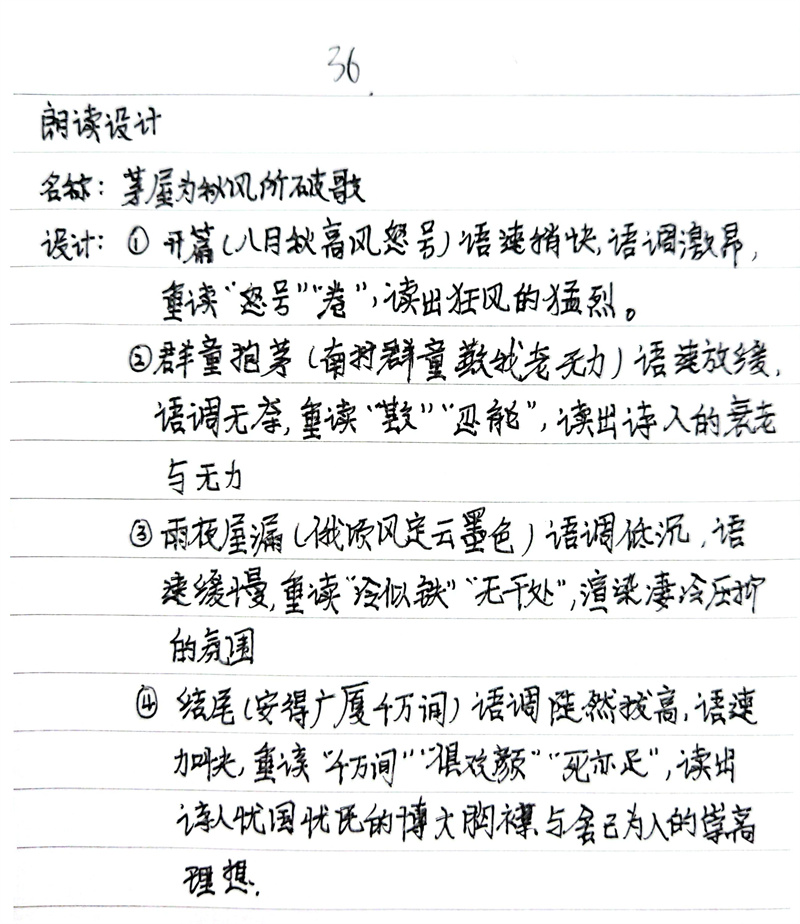 36.
朗读设计
名称：茅屋为秋风所破歌
设计：① 开篇（八月秋高风怒号）语速稍快，语调激昂，
重读“怒号”“卷”，读出狂风的猛烈。
②群童抱茅（南村群童欺我老无力）语速放缓，
语调无奈，重读“欺”“忍能”，读出诗人的衰老
与无力
③ 雨夜屋漏（俄顷风定云墨色）语调低沉，语
速缓慢，重读“冷似铁”“无干处”，渲染凄冷压抑
的氛围
④ 结尾（安得广厦千万间）语调陡然拔高，语速
加快，重读“千万间”“俱欢颜”“死亦足”，读出
诗人忧国忧民的博大胸襟与舍己为人的崇高
理想.